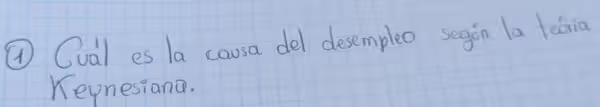 ① Cuál es la causa del desempleo según la teoría
Keynesiana.